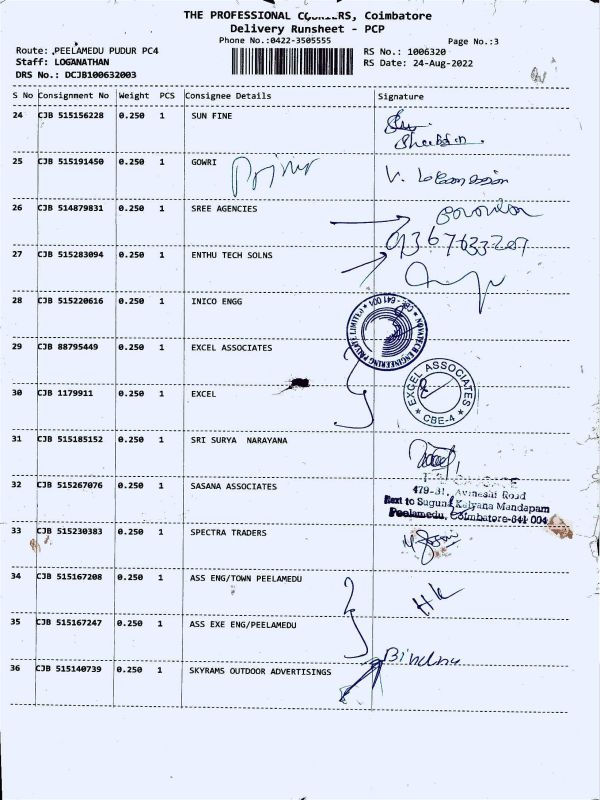 THE PROFESSIONAL COURIERS, Coimbatore
Delivery Runsheet - PCP
Phone No.:0422-3505555
Page No.:3
Route: PEELAMEDU PUDUR PC4
RS No.: 1006320
Staff: LOGANATHAN
RS Date: 24-Aug-2022
DRS No.: DCJB100632003
S No Consignment No Weight PCS Consignee Details Signature
24 CJB 515156228 0.250 1 SUN FINE
25 CJB 515191450 0.250 1 GOWRI
26 CJB 514879831 0.250 1 SREE AGENCIES
27 CJB 515283094 0.250 1 ENTHU TECH SOLNS
28 CJB 515220616 0.250 1 INICO ENGG
NOVATECH ENGINEERING PRIVATE LIMITED * CBE - 641 001 *
29 CJB 88795449 0.250 1 EXCEL ASSOCIATES
30 CJB 1179911 0.250 1 EXCEL
EXCEL ASSOCIATES * CBE-4 *
31 CJB 515185152 0.250 1 SRI SURYA NARAYANA
32 CJB 515267076 0.250 1 SASANA ASSOCIATES
479-31, Avinashi Road
Next to Suguna Kalyana Mandapam
Peelamedu, Coimbatore-641 004
33 CJB 515230383 0.250 1 SPECTRA TRADERS
34 CJB 515167208 0.250 1 ASS ENG/TOWN PEELAMEDU
HK
35 CJB 515167247 0.250 1 ASS EXE ENG/PEELAMEDU
Bindhu
36 CJB 515140739 0.250 1 SKYRAMS OUTDOOR ADVERTISINGS